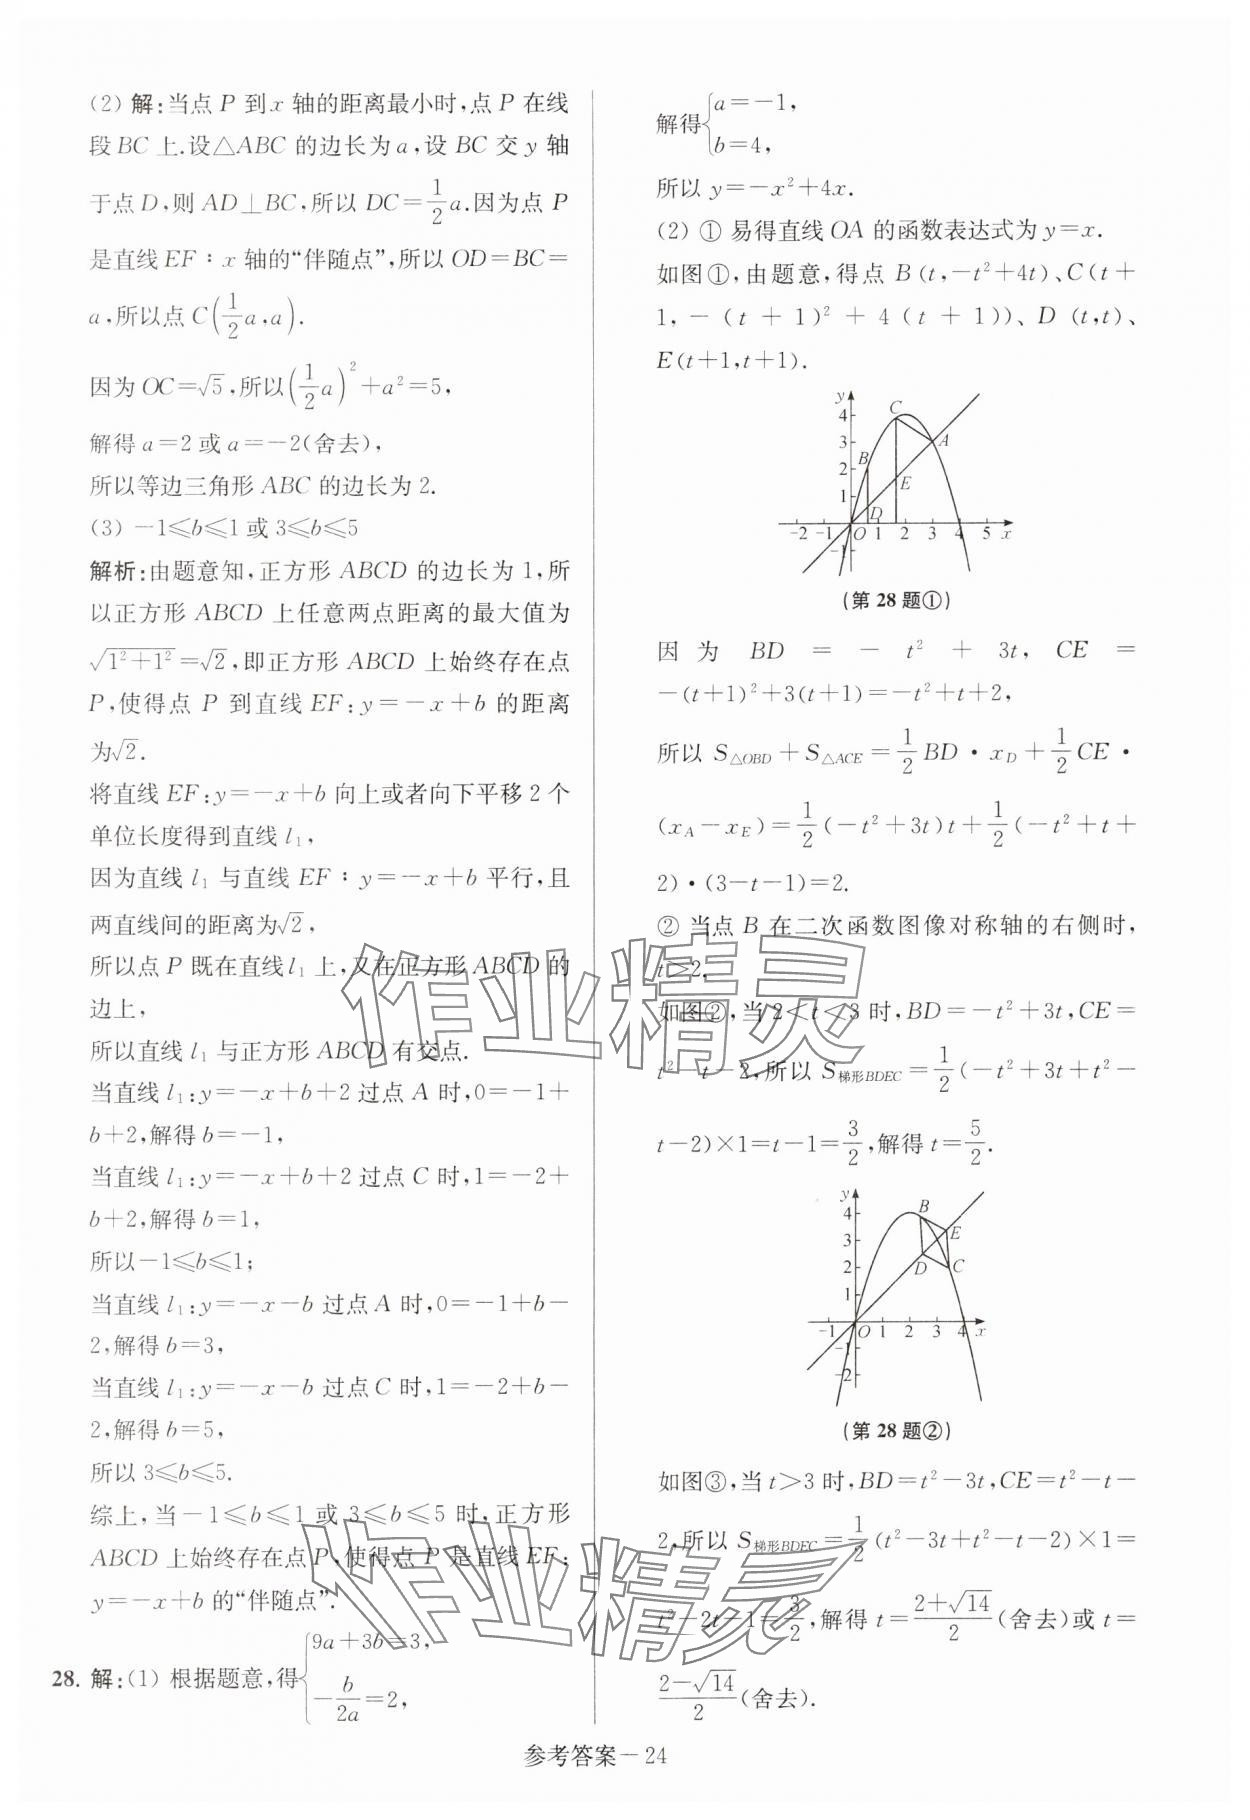 (2) 解:当点 P 到 x 轴的距离最小时,点 P 在线
段 BC 上.设△ABC 的边长为 a,设 BC 交 y 轴
于点 D,则 AD⊥BC,所以 DC=1/2a.因为点 P
是直线 EF:x 轴的“伴随点”,所以 OD=BC=
a,所以点 C(1/2a,a).
因为 OC=√5,所以(1/2a)²+a²=5,
解得 a=2 或 a=-2(舍去),
所以等边三角形 ABC 的边长为 2.
(3) -1≤b≤1 或 3≤b≤5
解析:由题意知,正方形 ABCD 的边长为 1,所
以正方形 ABCD 上任意两点距离的最大值为
√(1²+1²)=√2,即正方形 ABCD 上始终存在点
P,使得点 P 到直线 EF:y=-x+b 的距离
为√2.
将直线 EF:y=-x+b 向上或者向下平移 2 个
单位长度得到直线 l₁,
因为直线 l₁ 与直线 EF:y=-x+b 平行,且
两直线间的距离为√2,
所以点 P 既在直线 l₁ 上,又在正方形 ABCD 的
边上,
所以直线 l₁ 与正方形 ABCD 有交点.
当直线 l₁:y=-x+b+2 过点 A 时,0=-1+
b+2,解得 b=-1,
当直线 l₁:y=-x+b+2 过点 C 时,1=-2+
b+2,解得 b=1,
所以-1≤b≤1;
当直线 l₁:y=-x-b 过点 A 时,0=-1+b-
2,解得 b=3,
当直线 l₁:y=-x-b 过点 C 时,1=-2+b-
2,解得 b=5,
所以 3≤b≤5.
综上,当-1≤b≤1 或 3≤b≤5 时,正方形
ABCD 上始终存在点 P,使得点 P 是直线 EF:
y=-x+b 的“伴随点”.
28. 解:(1) 根据题意,得{9a+3b=3,
-b/2a=2,
解得{a=-1,
b=4,
所以 y=-x²+4x.
(2) ① 易得直线 OA 的函数表达式为 y=x.
如图①,由题意,得点 B(t,-t²+4t)、C(t+
1,-(t+1)²+4(t+1))、D(t,t)、
E(t+1,t+1).
y
4 C
3 A
2 B
E
1
D
-2 -1 O 1 2 3 4 5 x
-1
(第 28 题①)
因为 BD=-t²+3t,CE=
-(t+1)²+3(t+1)=-t²+t+2,
所以 S△OBD+S△ACE=1/2BD·x_D+1/2CE·
(x_A-x_E)=1/2(-t²+3t)t+1/2(-t²+t+
2)·(3-t-1)=2.
② 当点 B 在二次函数图像对称轴的右侧时,
t>2,
如图②,当 2<t<3 时,BD=-t²+3t,CE=
t²-t-2,所以 S梯形BDEC=1/2(-t²+3t+t²-
t-2)×1=t-1=3/2,解得 t=5/2.
y
4 B
3 E
2 D C
1
-1 O 1 2 3 4 x
-1
-2
(第 28 题②)
如图③,当 t>3 时,BD=t²-3t,CE=t²-t-
2,所以 S梯形BDEC=1/2(t²-3t+t²-t-2)×1=
t²-2t-1=3/2,解得 t=(2+√14)/2(舍去)或 t=
(2-√14)/2(舍去).
参考答案－24
作业精灵
作业精灵